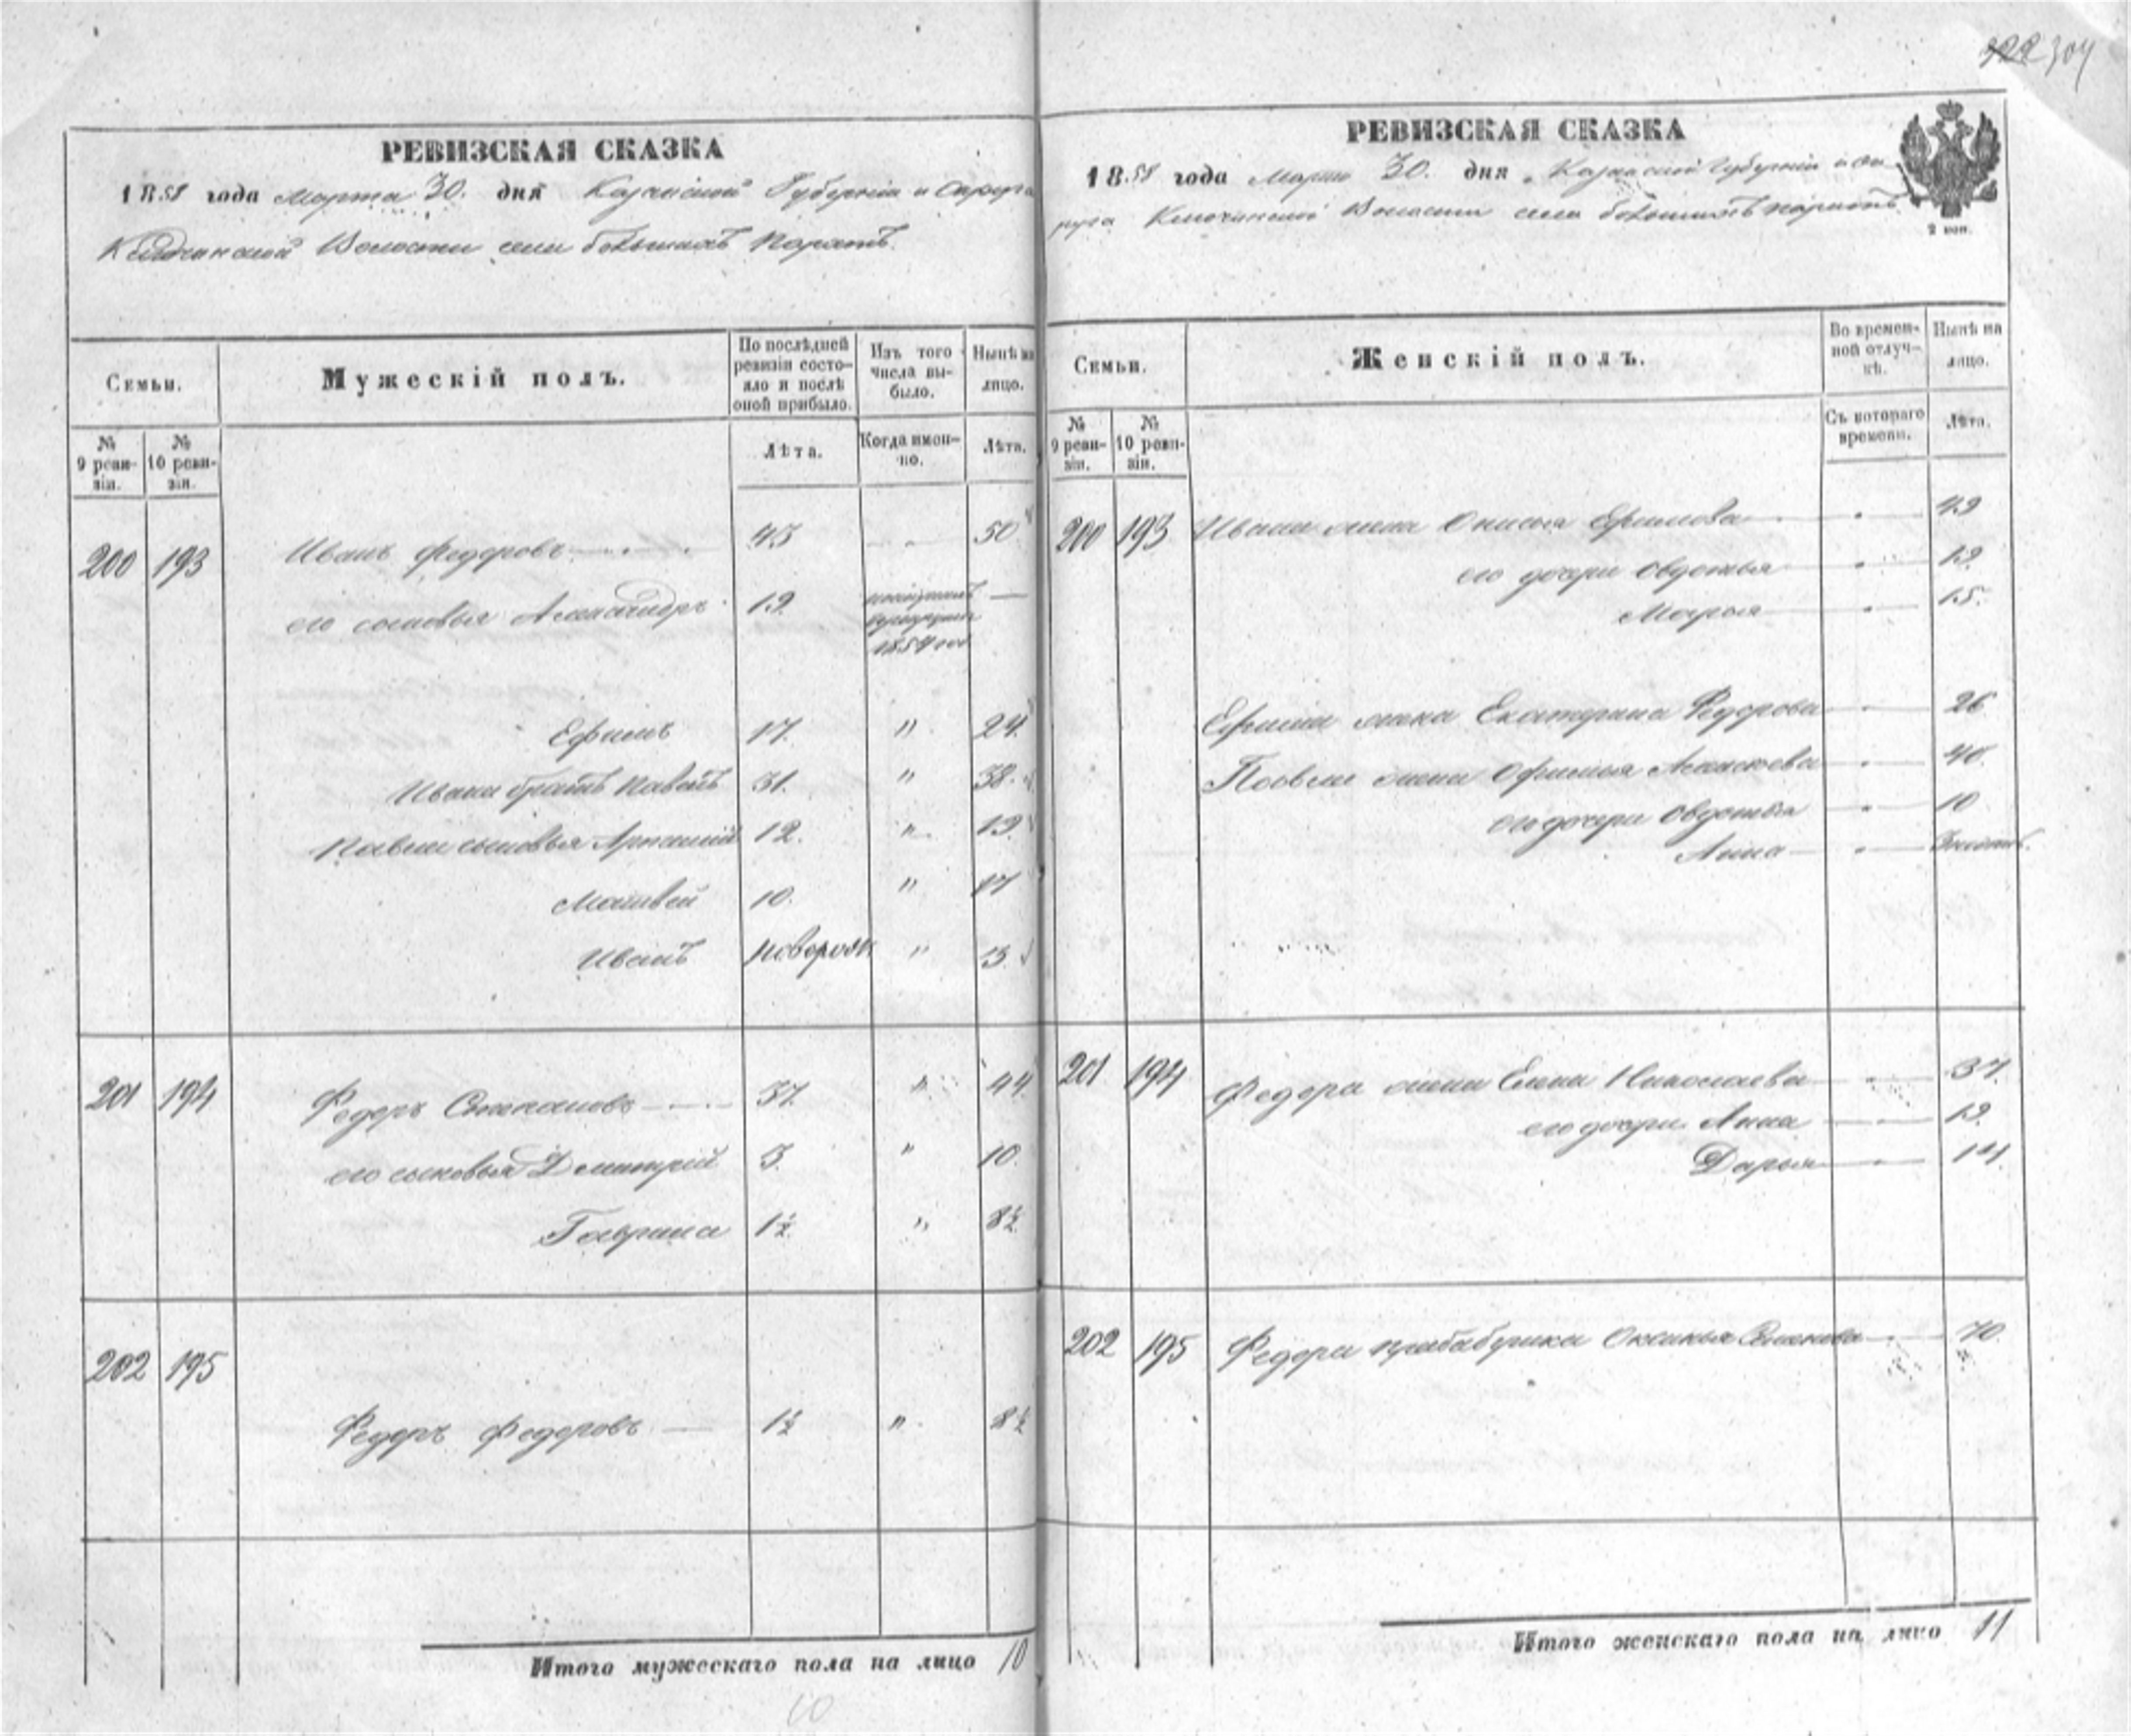 304
РЕВИЗСКАЯ СКАЗКА
1858 года Марта 30. дня Казанской Губернiи и Округа
Волости села большихъ Паратъ.
Семьи.
Мужескiй полъ.
По послѣдней ревизiи состояло и послѣ оной прибыло.
Изъ того числа выбыло.
Нынѣ на лицо.
№ 9 ревизiи.
№ 10 ревизiи.
Лѣта.
Когда именно.
Лѣта.
200 193 Иванъ Федоровъ 43 50
его сыновья Александръ 19 1854 год
Ефимъ 17. " 24
Ивана братъ Павелъ 31. " 38.
Павла сыновья 12. " 19
Матвей 10. " 17
Иванъ новорож "
201 194 Федоръ Степановъ 37. " 44
его сыновья Дмитрiй 3. " 10.
Гаврила 1½ " 8½
202 195
Федоръ Федоровъ 1½ " 8½
Итого мужескаго пола на лицо 10
10
РЕВИЗСКАЯ СКАЗКА
1858 года Марта 30. дня Казанской Губернiи и Ок
руга Волости села большихъ Паратъ.
2 коп.
Семьи.
Женскiй полъ.
Во временной отлучкѣ.
Нынѣ на лицо.
№ 9 ревизiи.
№ 10 ревизiи.
Съ котораго времени.
Лѣта.
200 193 Ивана жена Ефимова 49
его дочери Овдотья 19
Марья 15.
Ефима жена Екатерина Федорова 26
Павла жена Офимья 40.
его дочери Овдотья 10
Анна
201 194 Федора жена Елена Николаева 37.
его дочери Анна 19.
Дарья 14.
202 195 Федора прабабушка Оксинья 70.
Итого женскаго пола на лицо 11